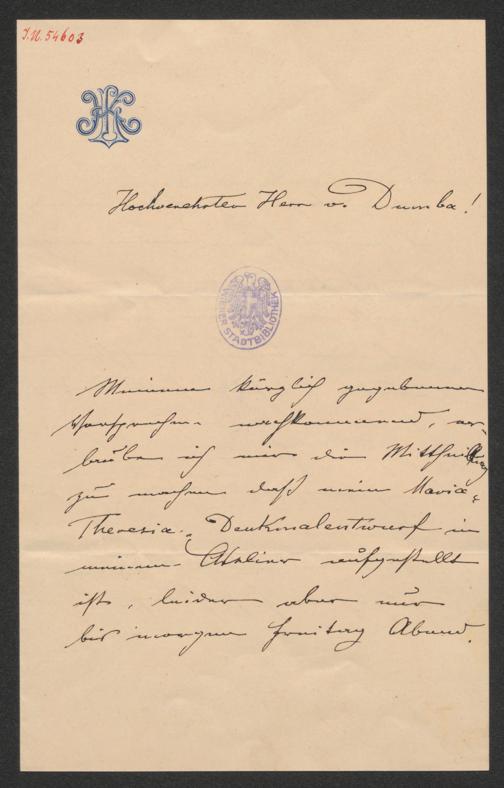 J.N. 54603
HK
Hochverehrter Herr v. Dumba!
WIENER STADTBIBLIOTHEK
Meinem kürzlich gegebenen
Versprechen nachkommend, er-
laube ich mir die Mittheilung
zu machen daß mein Maria-
Theresia-Denkmalentwurf in
meinem Atelier aufgestellt
ist, leider aber nur
bis morgen Freitag Abend.